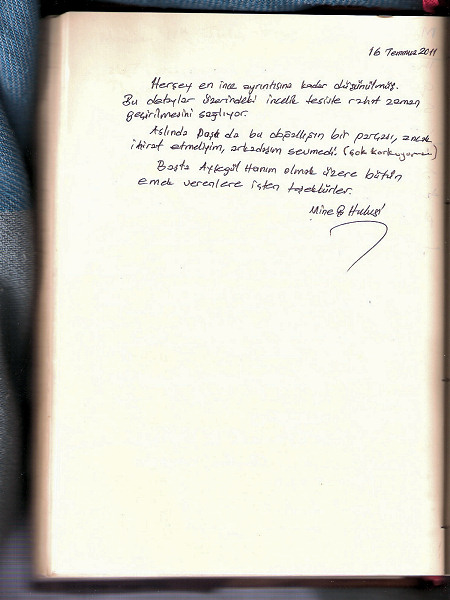 16 Temmuz 2011
Herşey en ince ayrıntısına kadar düşünülmüş.
Bu detaylar üzerindeki incelik tesiste rahat zaman
geçirilmesini sağlıyor.
Aslında Paşa da bu doğallığın bir parçası, ancak
itiraf etmeliyim, arkadaşım sevmedi! (çok korkuyormuş)
Başta Ayşegül Hanım olmak üzere bütün
emek verenlere içten teşekkürler.
Mine & Hulusi